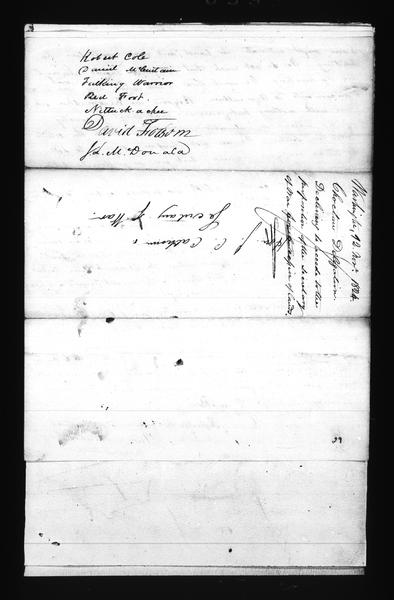 Robert Cole
Daniel McCurtain
Talking Warrior
Red Fort.
Nittuckachee
David Folsom
J. L. McDonald
J C Calhoun
Secretary of War.
Washington, 12 Novr. 1824.
Choctaw Delegation.
Declining to accede to the
proposition of the Secretary
of War for of lands.
39